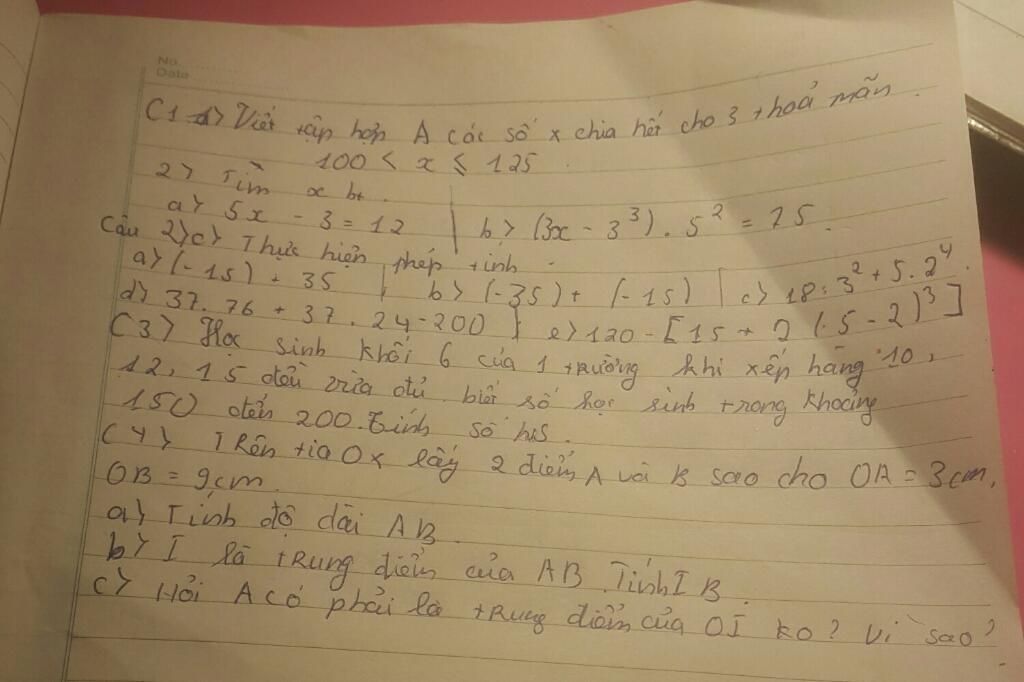 No.
Date
C1 a> Viết tập hợp A các số x chia hết cho 3 thoả mãn.
100 < x ≤ 125.
2> Tìm x bt.
a> 5x - 3 = 12 | b> (3x - 3³). 5² = 75.
Câu 2) c> Thực hiện phép tính.
a> (-15) + 35 | b> (-35) + (-15) | c> 18 : 3² + 5. 2⁴.
d> 37. 76 + 37. 24 - 200 | e> 120 - [15 + 2 (.5 - 2)³]
C3> Học sinh khối 6 của 1 trường khi xếp hàng 10,
12, 15 đều vừa đủ biết số học sinh trong khoảng
150 đến 200. Tính số hs.
C4> Trên tia Ox lấy 2 điểm A và B sao cho OA = 3cm,
OB = 9cm.
a) Tính độ dài AB.
b> I là trung điểm của AB. Tính IB.
c> Hỏi A có phải là trung điểm của OI ko? Vì sao?